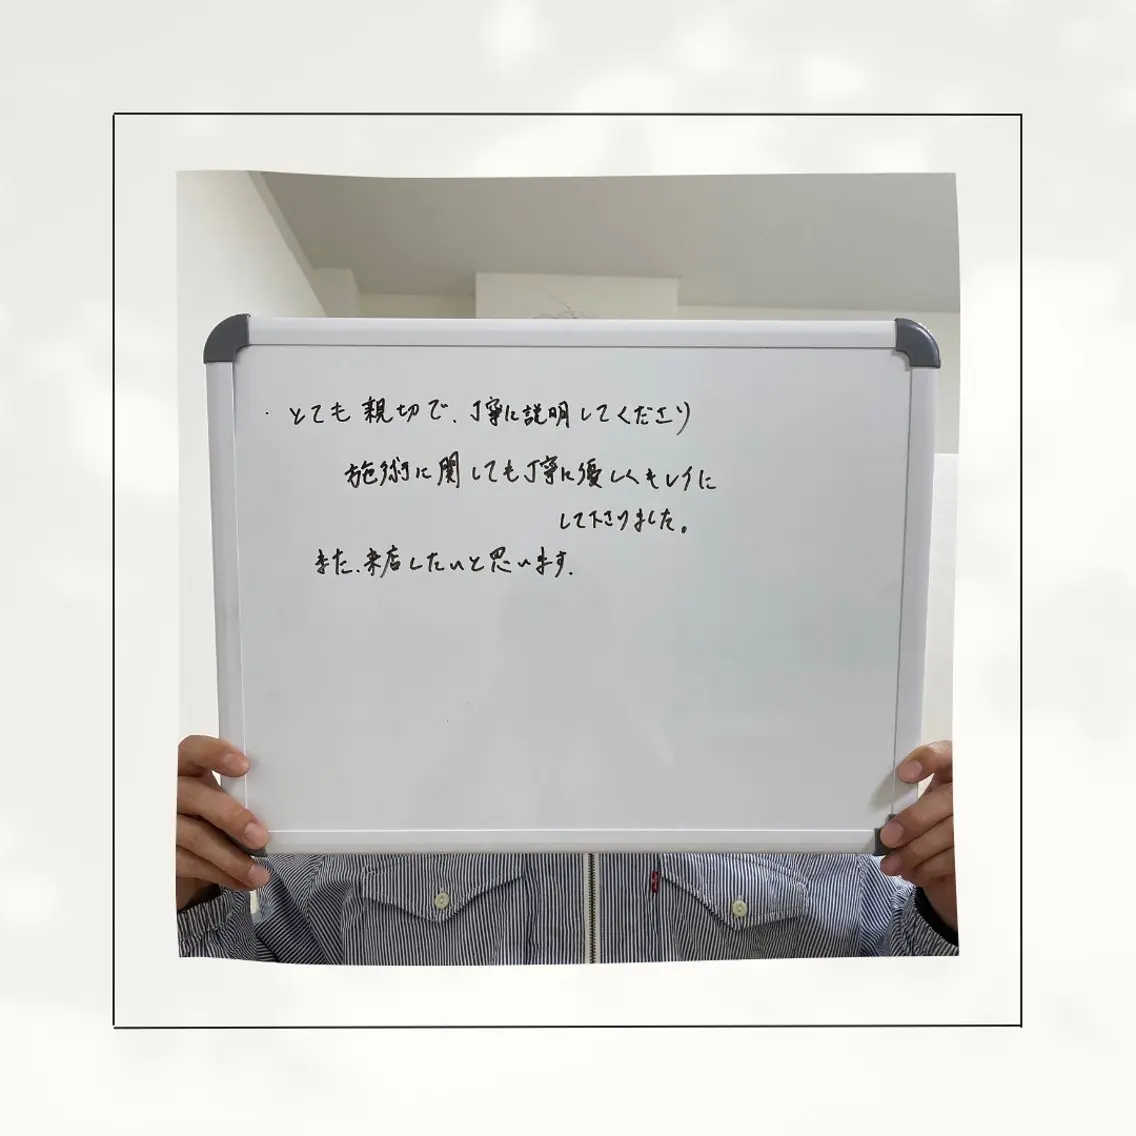 ・とても親切で、丁寧に説明してくださり
施術に関しても丁寧に優しくキレイに
して下さりました。
また、来店したいと思います。